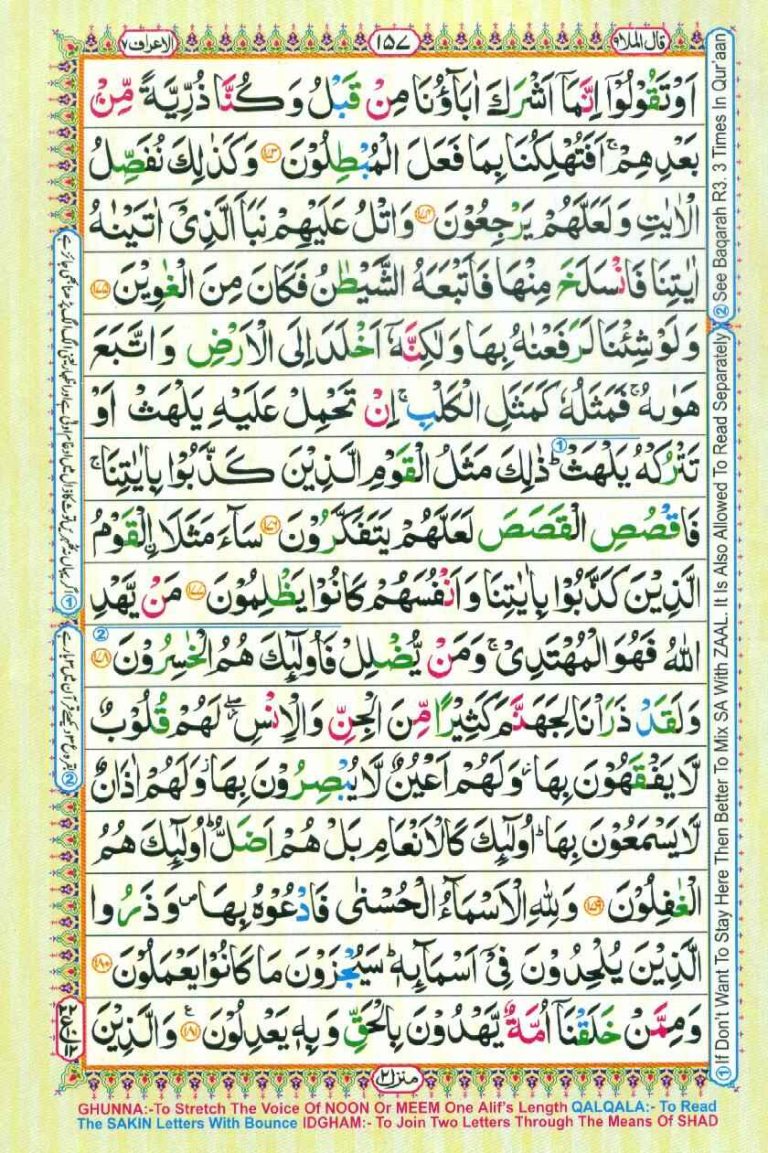 قال الملا ٩
١٥٧
الاعراف ٧
اَوْ تَقُوْلُوْۤا اِنَّمَاۤ اَشْرَكَ اٰبَآؤُنَا مِنْ قَبْلُ وَ كُنَّا ذُرِّيَّةً مِّنْۢ
بَعْدِهِمْ ۚ اَفَتُهْلِكُنَا بِمَا فَعَلَ الْمُبْطِلُوْنَ ۝١٧٣ وَكَذٰلِكَ نُفَصِّلُ
الْاٰيٰتِ وَلَعَلَّهُمْ يَرْجِعُوْنَ ۝١٧٤ وَاتْلُ عَلَيْهِمْ نَبَاَ الَّذِيْۤ اٰتَيْنٰهُ
اٰيٰتِنَا فَانْسَلَخَ مِنْهَا فَاَتْبَعَهُ الشَّيْطٰنُ فَكَانَ مِنَ الْغٰوِيْنَ ۝١٧٥
وَلَوْ شِئْنَا لَرَفَعْنٰهُ بِهَا وَلٰكِنَّهٗۤ اَخْلَدَ اِلَى الْاَرْضِ وَاتَّبَعَ
هَوٰىهُ ۚ فَمَثَلُهٗ كَمَثَلِ الْكَلْبِ ۚ اِنْ تَحْمِلْ عَلَيْهِ يَلْهَثْ اَوْ
تَتْرُكْهُ يَلْهَثْ ؕ ① ذٰلِكَ مَثَلُ الْقَوْمِ الَّذِيْنَ كَذَّبُوْا بِاٰيٰتِنَا ۚ
فَاقْصُصِ الْقَصَصَ لَعَلَّهُمْ يَتَفَكَّرُوْنَ ۝١٧٦ سَآءَ مَثَلَا ۨالْقَوْمُ
الَّذِيْنَ كَذَّبُوْا بِاٰيٰتِنَا وَاَنْفُسَهُمْ كَانُوْا يَظْلِمُوْنَ ۝١٧٧ مَنْ يَّهْدِ
اللّٰهُ فَهُوَ الْمُهْتَدِيْ ۚ وَمَنْ يُّضْلِلْ فَاُولٰٓئِكَ هُمُ الْخٰسِرُوْنَ ② ۝١٧٨
وَلَقَدْ ذَرَاْنَا لِجَهَنَّمَ كَثِيْرًا مِّنَ الْجِنِّ وَالْاِنْسِ ۖ لَهُمْ قُلُوْبٌ
لَّا يَفْقَهُوْنَ بِهَا ؗ وَلَهُمْ اَعْيُنٌ لَّا يُبْصِرُوْنَ بِهَا ؗ وَلَهُمْ اٰذَانٌ
لَّا يَسْمَعُوْنَ بِهَا ؕ اُولٰٓئِكَ كَالْاَنْعَامِ بَلْ هُمْ اَضَلُّ ؕ اُولٰٓئِكَ هُمُ
الْغٰفِلُوْنَ ۝١٧٩ وَلِلّٰهِ الْاَسْمَآءُ الْحُسْنٰى فَادْعُوْهُ بِهَا ۪ وَذَرُوا
الَّذِيْنَ يُلْحِدُوْنَ فِيْۤ اَسْمَآئِهٖ ؕ سَيُجْزَوْنَ مَا كَانُوْا يَعْمَلُوْنَ ۝١٨٠
وَمِمَّنْ خَلَقْنَاۤ اُمَّةٌ يَّهْدُوْنَ بِالْحَقِّ وَبِهٖ يَعْدِلُوْنَ ۝١٨١ ع وَالَّذِيْنَ
منزل ٢
GHUNNA:-To Stretch The Voice Of NOON Or MEEM One Alif's Length QALQALA:- To Read
The SAKIN Letters With Bounce IDGHAM:- To Join Two Letters Through The Means Of SHAD
① If Don't Want To Stay Here Then Better To Mix SA With ZAAL. It Is Also Allowed To Read Separately ② See Baqarah R3. 3 Times In Qur'aan